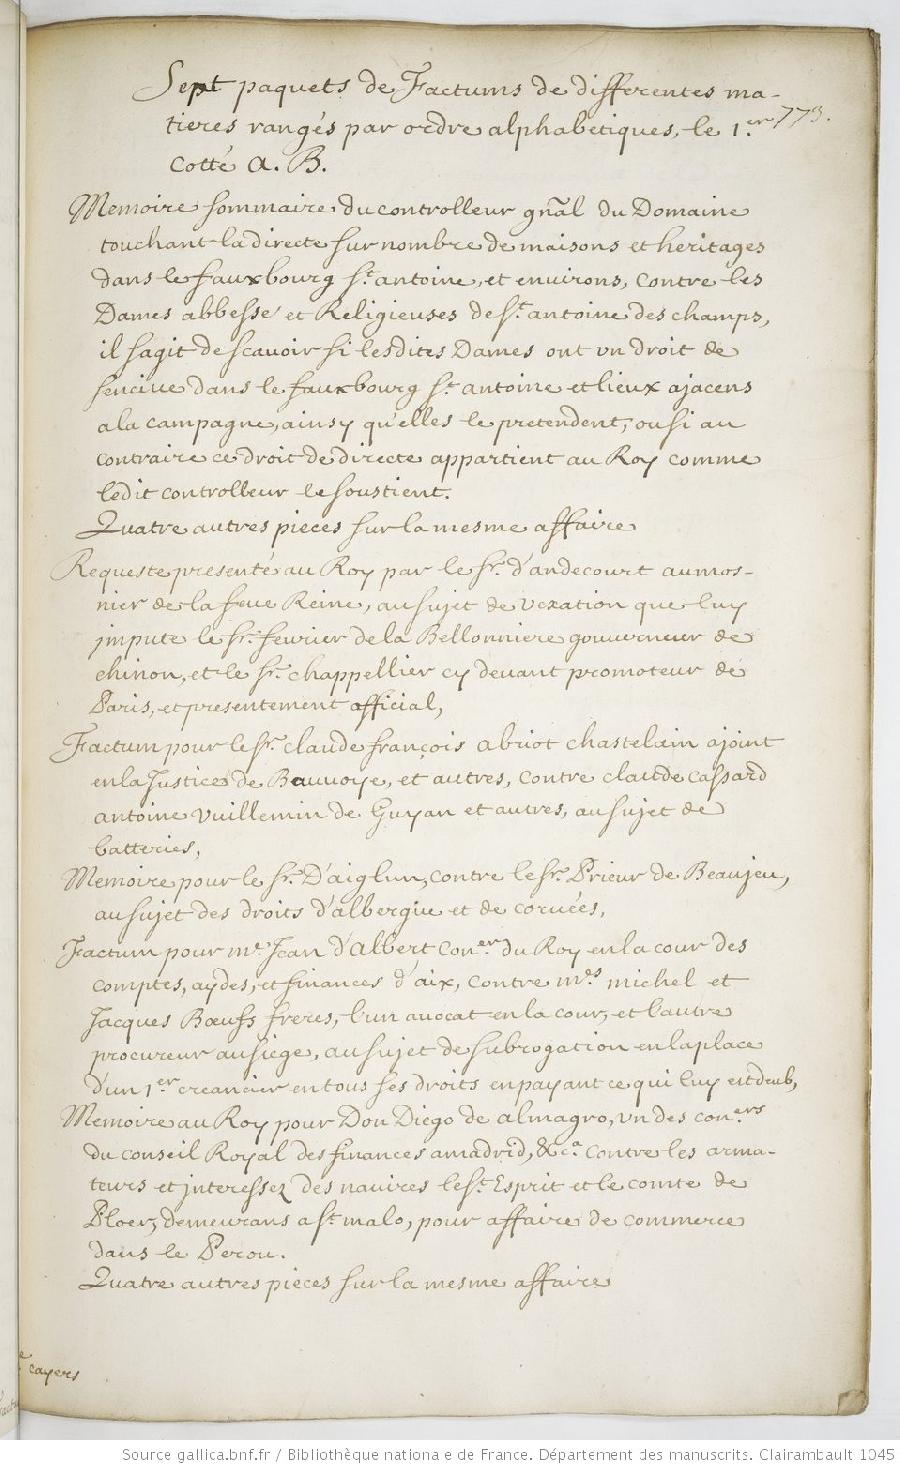 Sept paquets de Factums de differentes ma-
tieres rangés par ordre alphabetiques, le 1.er
773.
cotté a. B.
Memoire sommaire du controlleur gnâl du Domaine
touchant la directe sur nombre de maisons et heritages
dans le fauxbourg St. antoine, et environs, contre les
Dames abbesse et Religieuses de St. antoine des champs,
il sagit de scavoir si lesdites Dames ont un droit de
sencive dans le fauxbourg St. antoine et lieux ajacens
a la campagne, ainsy qu'elles le pretendent, ou si au
contraire ce droit de directe appartient au Roy comme
ledit controlleur le soustient.
Quatre autres pieces sur la mesme affaire
Requeste presenté au Roy par le Sr. d'andecourt aumos-
nier de la feue Reine, au sujet de vexation que luy
impute le Sr. fevrier de la Bellonniere gouverneur de
chinon, et le Sr. chappellier cy devant promoteur de
Paris, et presentement official,
Factum pour le Sr. claude françois abriot chastelain ajoint
en la Justice de Bauvoye, et autres, contre claude cassard
antoine Vuillemin de Guyan et autres, au sujet de
batteries,
Memoire pour le Sr. D'aiglun, contre le Sr. Prieur de Beaujeu,
au sujet des droits d'albergue et de corvées,
Factum pour me. Jean d'Albert coner. du Roy en la cour des
comptes, aydes, et finances d'aix, contre mes. michel et
Jacques Bœufs freres, l'un avocat en la cour, et l'autre
procureur au siege, au sujet de subrogation en la place
d'un 1.er creancier en tous ses droits en payant ce qui luy est deub,
Memoire au Roy pour Don Diego de almagro, un des coners.
du conseil Royal des finances a madrid, &ca. contre les arma-
teurs et interessez des navires le St. Esprit et le comte de
Ploer, demeurans a St. malo, pour affaire de commerce
dans le Perou.
Quatre autres pieces sur la mesme affaire
cayers
Source gallica.bnf.fr / Bibliothèque nationale de France. Département des manuscrits. Clairambault 1045